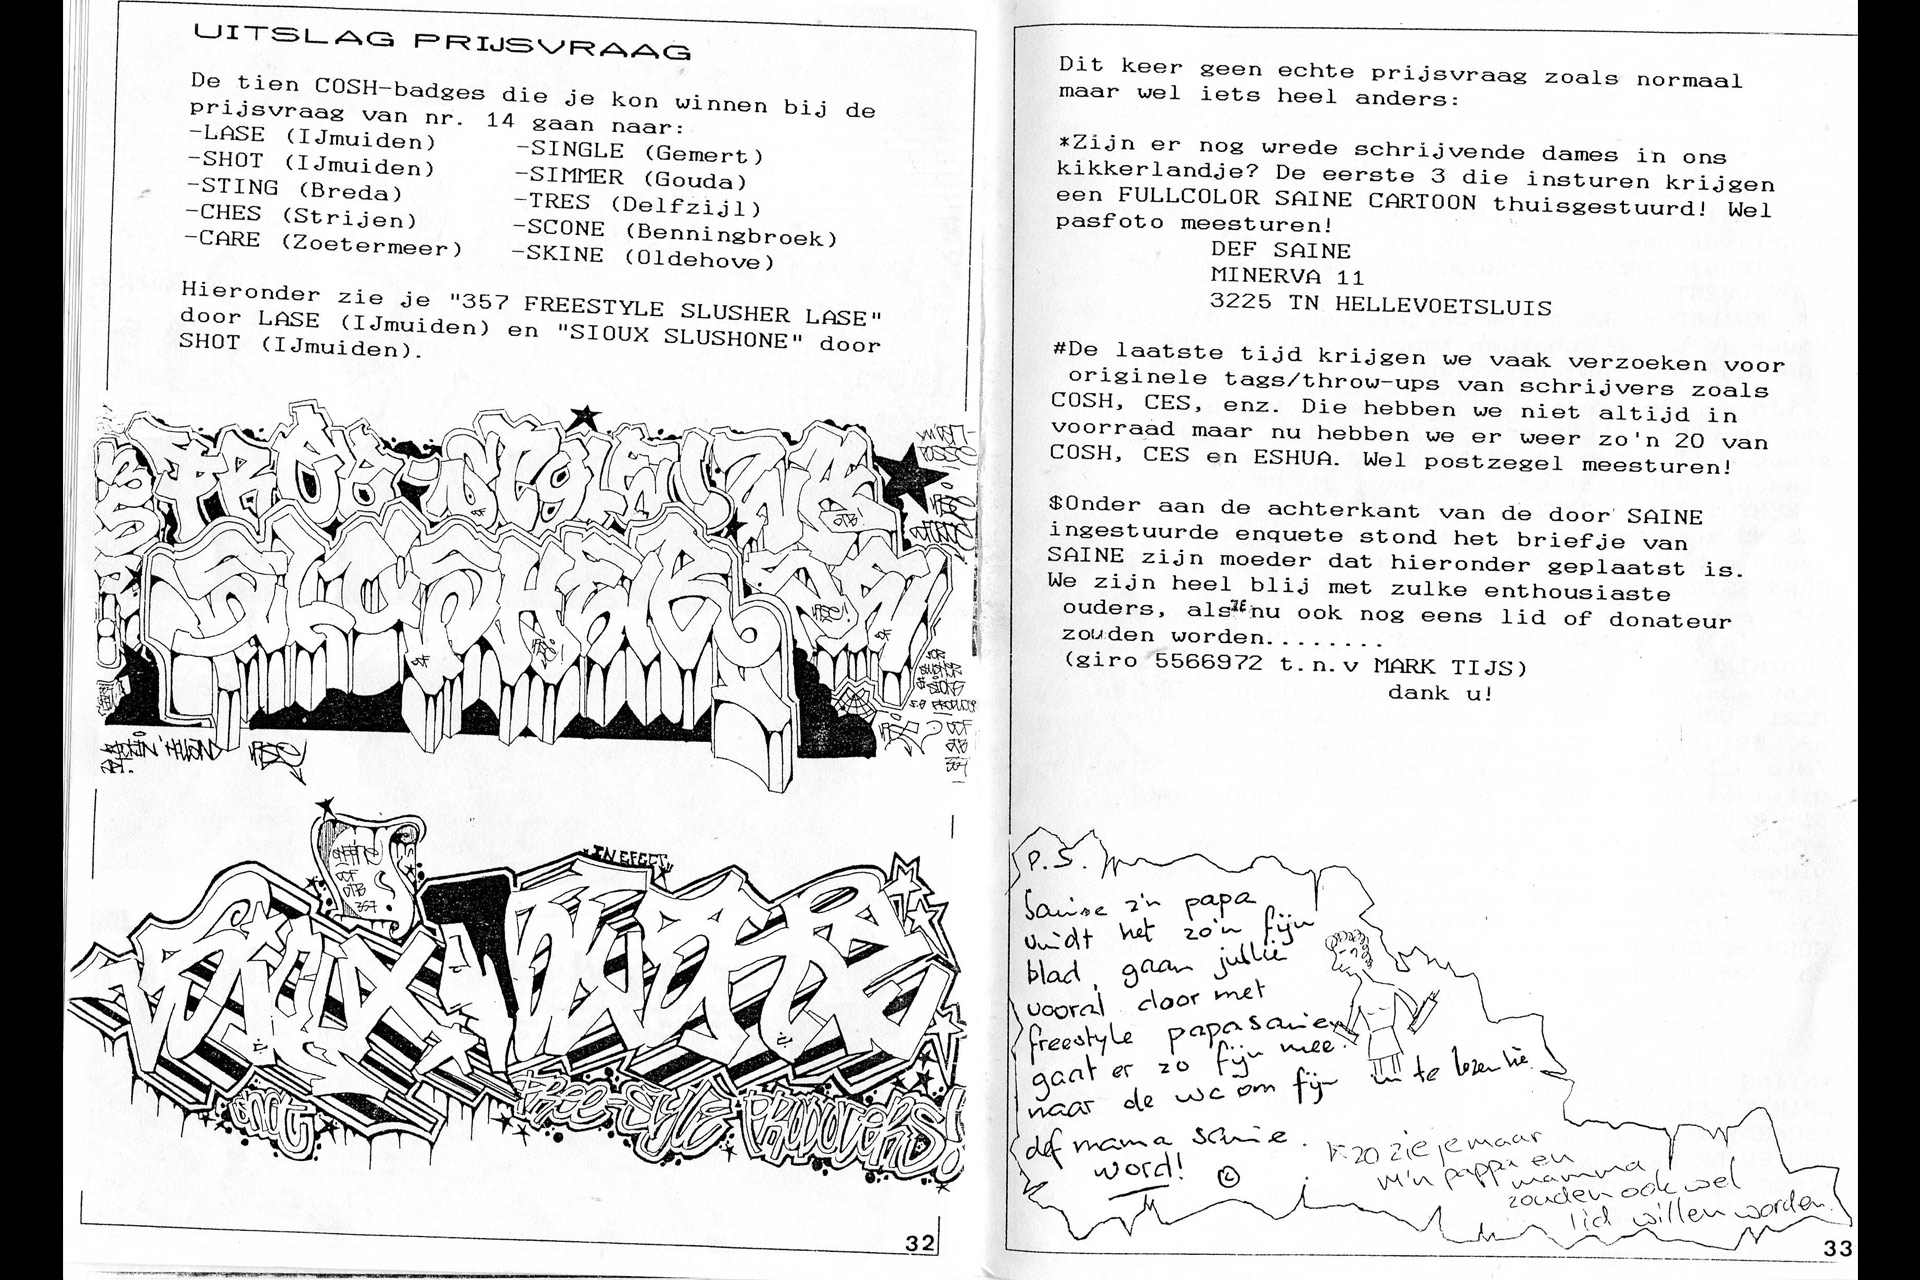 UITSLAG PRIJSVRAAG
De tien COSH-badges die je kon winnen bij de
prijsvraag van nr. 14 gaan naar:
-LASE (IJmuiden)
-SHOT (IJmuiden)
-STING (Breda)
-CHES (Strijen)
-CARE (Zoetermeer)
-SINGLE (Gemert)
-SIMMER (Gouda)
-TRES (Delfzijl)
-SCONE (Benningbroek)
-SKINE (Oldehove)
Hieronder zie je "357 FREESTYLE SLUSHER LASE"
door LASE (IJmuiden) en "SIOUX SLUSHONE" door
SHOT (IJmuiden).
SLUSHER
"IN EFECT"
OCF
OTB
357
SHOT
FREE-STYLE PRODUCERS!
32
Dit keer geen echte prijsvraag zoals normaal
maar wel iets heel anders:
*Zijn er nog wrede schrijvende dames in ons
kikkerlandje? De eerste 3 die insturen krijgen
een FULLCOLOR SAINE CARTOON thuisgestuurd! Wel
pasfoto meesturen!
DEF SAINE
MINERVA 11
3225 TN HELLEVOETSLUIS
#De laatste tijd krijgen we vaak verzoeken voor
originele tags/throw-ups van schrijvers zoals
COSH, CES, enz. Die hebben we niet altijd in
voorraad maar nu hebben we er weer zo'n 20 van
COSH, CES en ESHUA. Wel postzegel meesturen!
$Onder aan de achterkant van de door SAINE
ingestuurde enquete stond het briefje van
SAINE zijn moeder dat hieronder geplaatst is.
We zijn heel blij met zulke enthousiaste
ouders, als ze nu ook nog eens lid of donateur
zouden worden........
(giro 5566972 t.n.v MARK TIJS)
dank u!
P.S.
Sanie z'n papa
vindt het zo'n fijn
blad, gaan jullie
vooral door met
freestyle papa sanie
gaat er zo fijn mee
naar de wc om fijn in te lezen hè.
def mama sanie.
word! ©
zo zie je maar
m'n pappa en
mamma
zouden ook wel
lid willen worden.
33